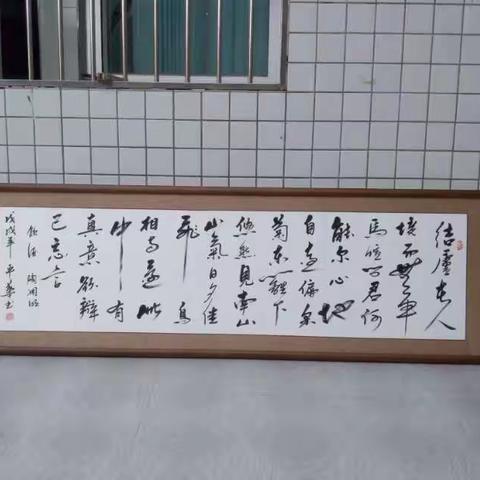 结廬在人
境而無車
馬喧问君何
能尔心地
自遠偏采
菊东籬下
悠然見南山
山氣日夕佳
飛鳥
相与還此
中有
真意欲辯
已忘言
饮酒 陶渊明
戊戌年 平華书